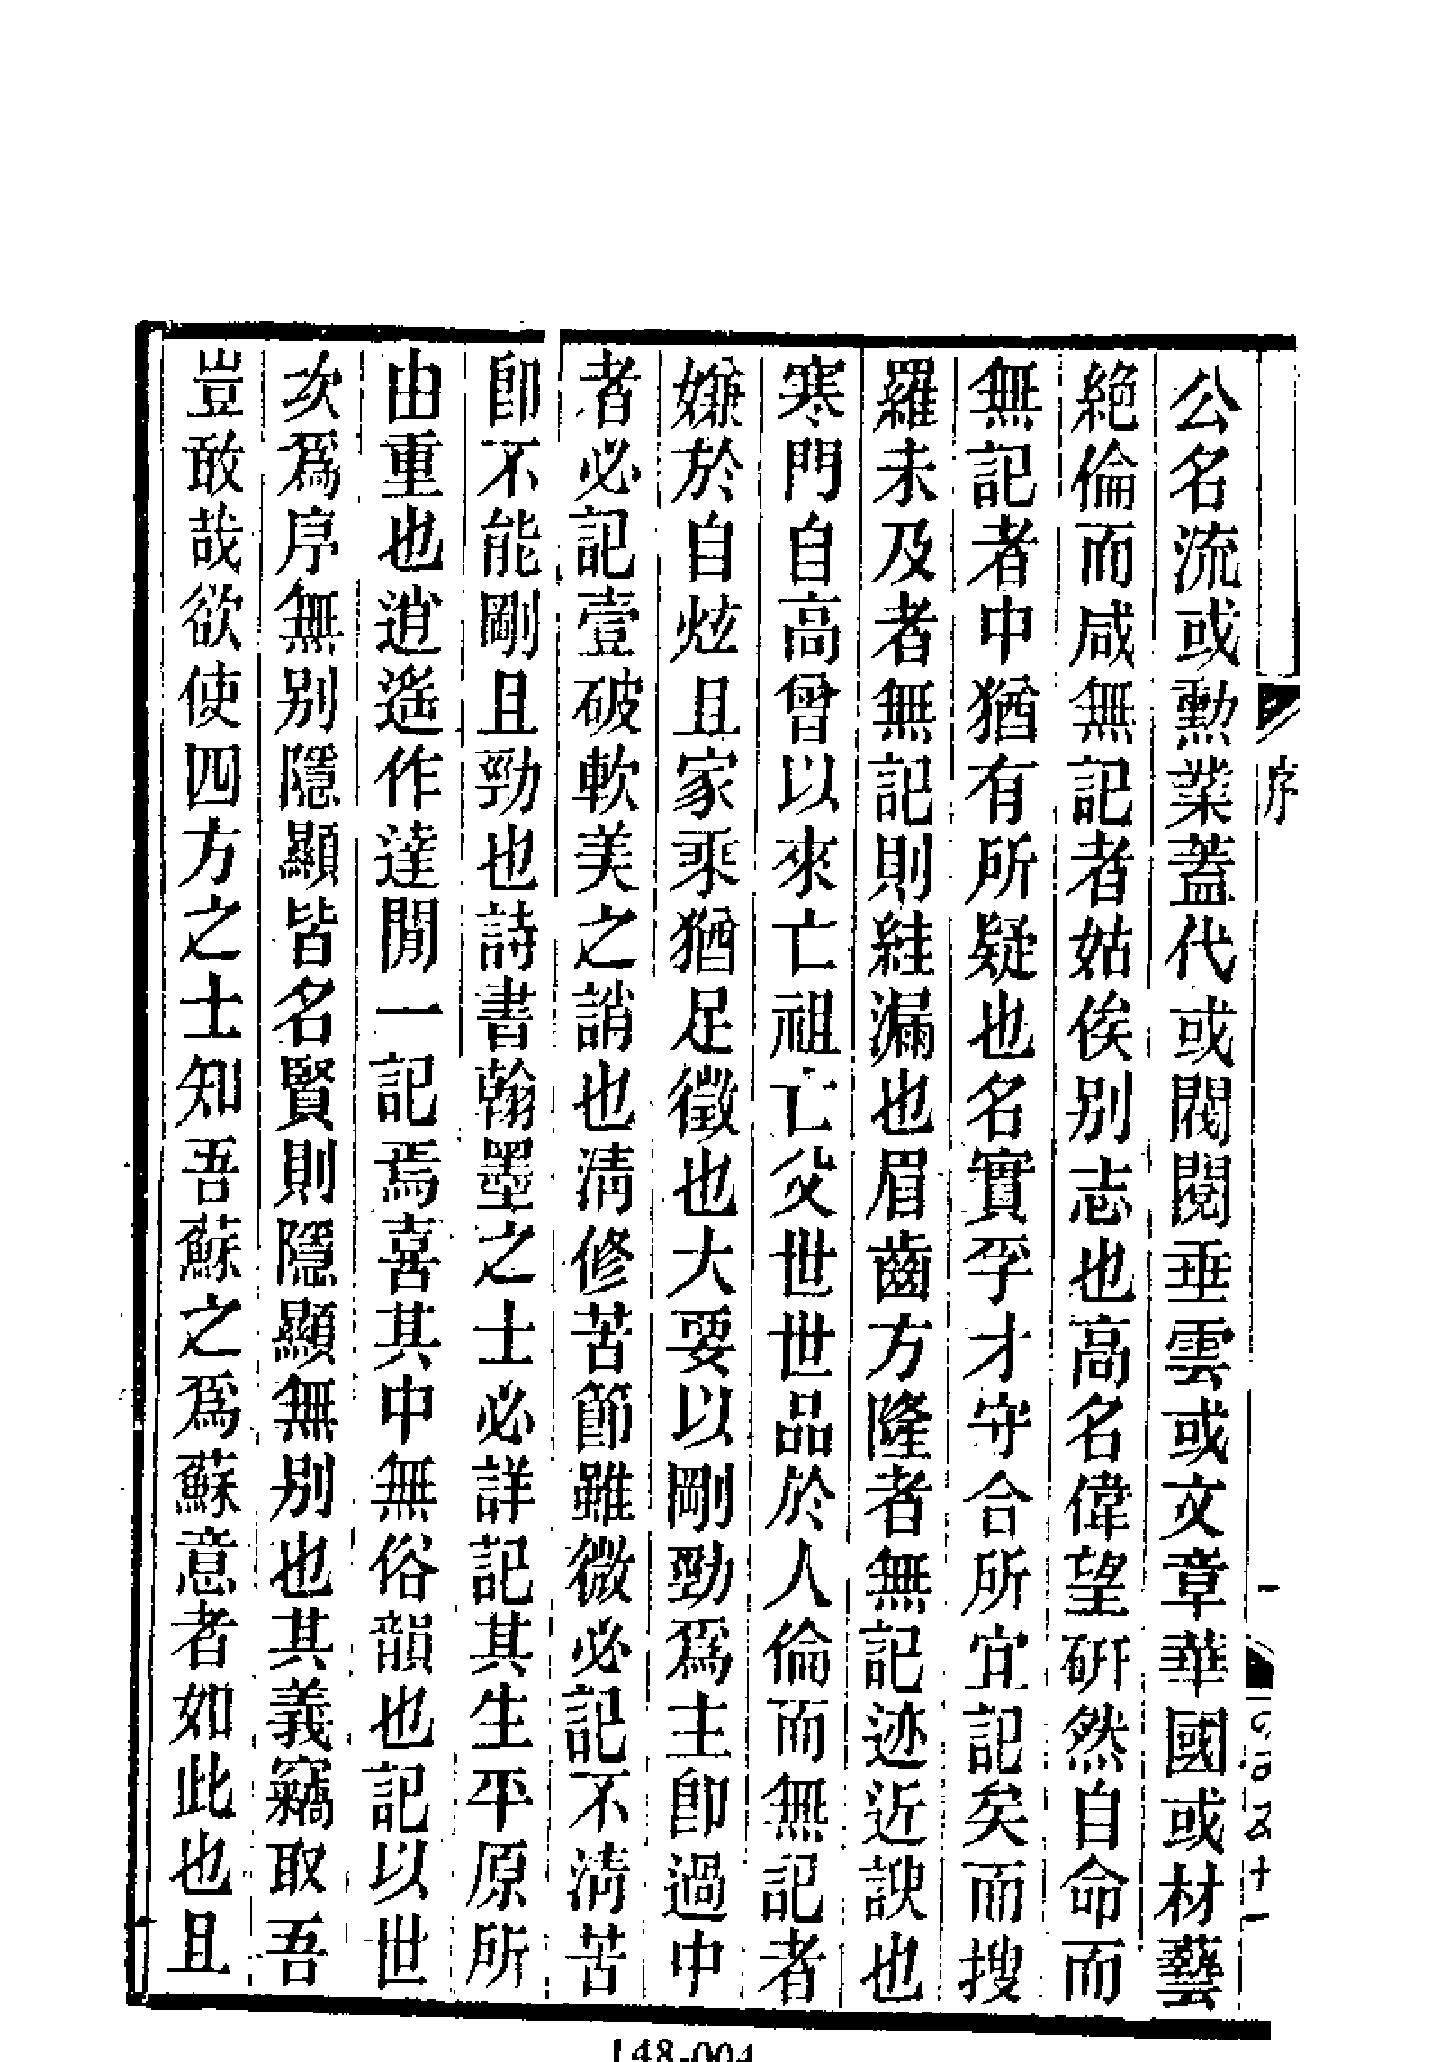 序
公名流或勲業蓋代或閥閱垂雲或文章華國或材藝
絶倫而咸無記者姑俟别志也高名偉望硏然自命而
無記者中猶有所疑也名實孚才守合所宜記矣而搜
羅未及者無記則絓漏也眉齒方隆者無記迹近諛也
寒門自高曾以來亡祖亡父世世品於人倫而無記者
嫌於自炫且家乘猶足徵也大要以剛勁爲主卽過中
者必記壹破軟美之誚也淸修苦節雖微必記不淸苦
卽不能剛且勁也詩書翰墨之士必詳記其生平原所
由重也逍遙作達閒一記焉喜其中無俗韻也記以世
次爲序無别隱顯皆名賢則隱顯無别也其義竊取吾
豈敢哉欲使四方之士知吾蘇之爲蘇意者如此也且
148-004